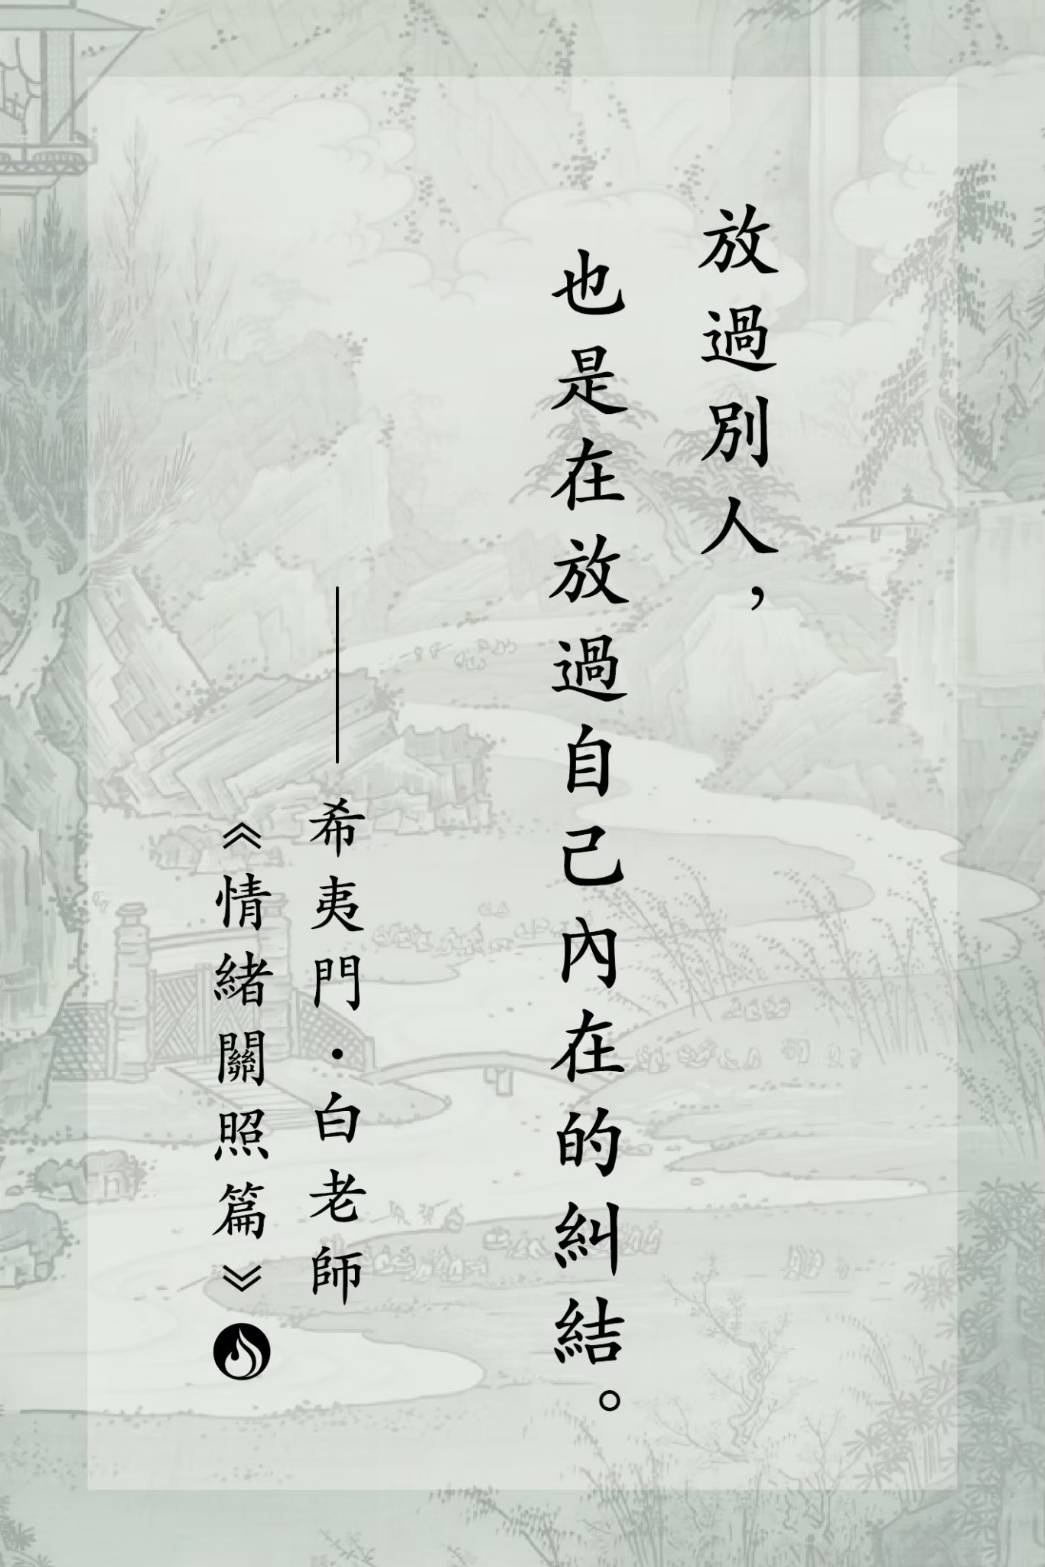 放過別人，
也是在放過自己內在的糾結。
——希夷門・白老師
《情緒關照篇》